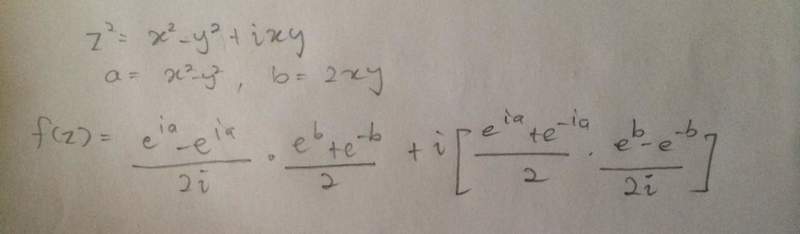 z² = x²-y² + ixy
a = x²-y², b = 2xy
f(z) = (e^{ia} - e^{ia})/2i · (e^b + e^{-b})/2 + i[(e^{ia} + e^{-ia})/2 · (e^b - e^{-b})/2i]